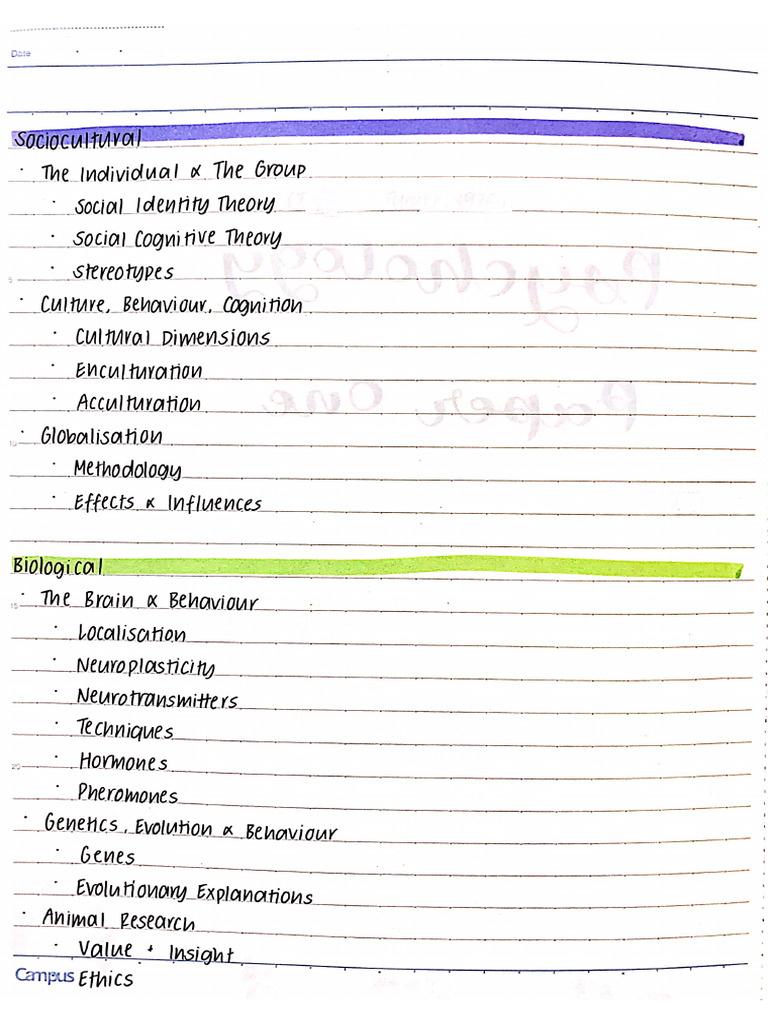 Date
Sociocultural
· The Individual & The Group
· Social Identity Theory
· Social Cognitive Theory
· Stereotypes
5
· Culture, Behaviour, Cognition
· Cultural Dimensions
· Enculturation
· Acculturation
10
· Globalisation
· Methodology
· Effects & Influences
Biological
15
· The Brain & Behaviour
· Localisation
· Neuroplasticity
· Neurotransmitters
· Techniques
20
· Hormones
· Pheromones
· Genetics, Evolution & Behaviour
· Genes
· Evolutionary Explanations
· Animal Research
· Value + Insight
Campus Ethics
Psychology
Paper One